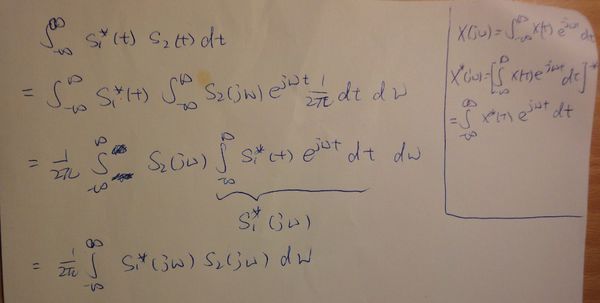 ∫_{-∞}^{∞} S₁*(t) S₂(t) dt
= ∫_{-∞}^{∞} S₁*(t) ∫_{-∞}^{∞} S₂(jω) e^{jωt} 1/2π dt dω
= 1/2π ∫_{-∞}^{∞} S₂(jω) ∫_{-∞}^{∞} S₁*(t) e^{jωt} dt dω
S₁*(jω)
= 1/2π ∫_{-∞}^{∞} S₁*(jω) S₂(jω) dω
X(jω) = ∫_{-∞}^{∞} x(t) e^{jωt} dt
X*(jω) = [∫_{-∞}^{∞} x(t) e^{-jωt} dt]*
= ∫_{-∞}^{∞} x*(t) e^{jωt} dt